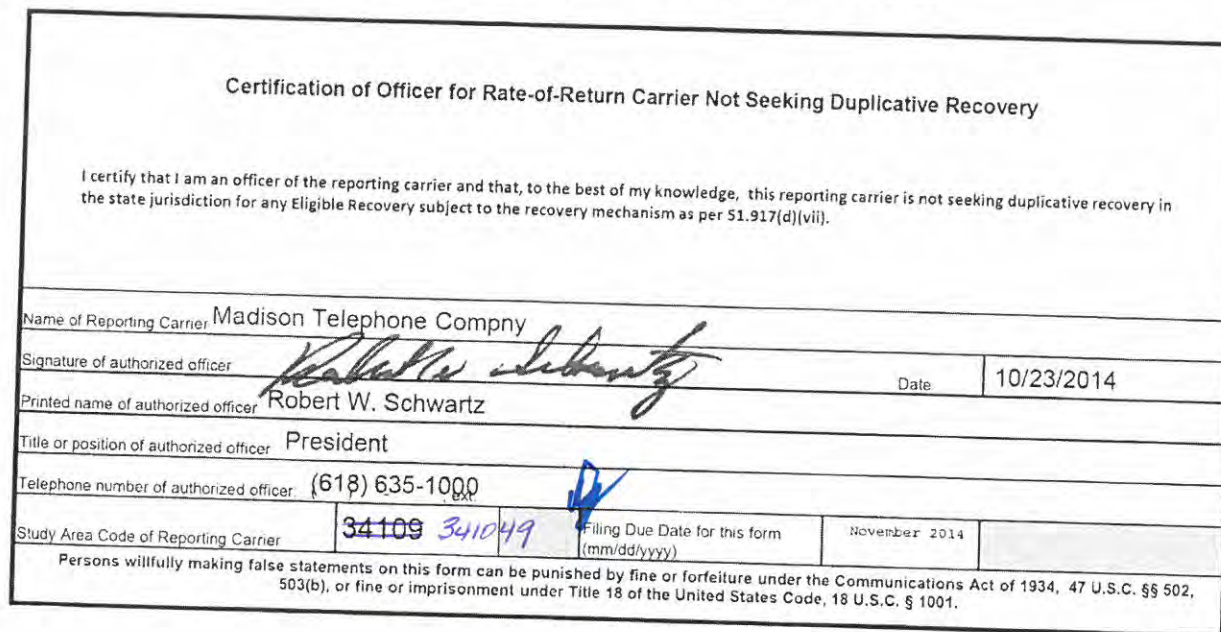 Certification of Officer for Rate-of-Return Carrier Not Seeking Duplicative Recovery
I certify that I am an officer of the reporting carrier and that, to the best of my knowledge, this reporting carrier is not seeking duplicative recovery in
the state jurisdiction for any Eligible Recovery subject to the recovery mechanism as per 51.917(d)(vii).
Name of Reporting Carrier Madison Telephone Compny
Signature of authorized officer Robert W Schwartz Date 10/23/2014
Printed name of authorized officer Robert W. Schwartz
Title or position of authorized officer President
Telephone number of authorized officer: (618) 635-1000 ext.
Study Area Code of Reporting Carrier 34109 341049 Filing Due Date for this form November 2014
(mm/dd/yyyy)
Persons willfully making false statements on this form can be punished by fine or forfeiture under the Communications Act of 1934, 47 U.S.C. §§ 502,
503(b), or fine or imprisonment under Title 18 of the United States Code, 18 U.S.C. § 1001.